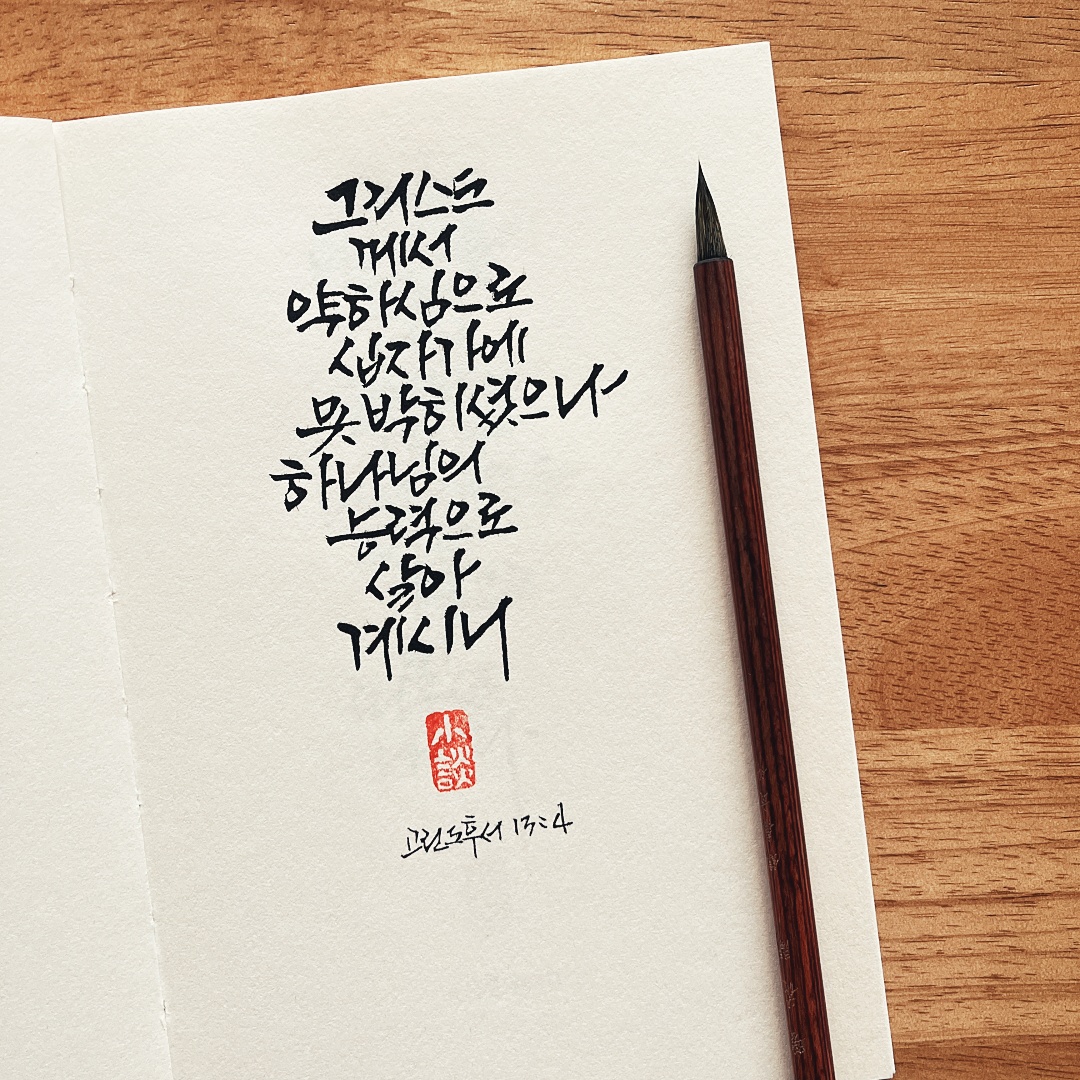 그리스도
께서
약하심으로
십자가에
못 박히셨으나
하나님의
능력으로
살아
계시니
小談
고린도후서 13:4